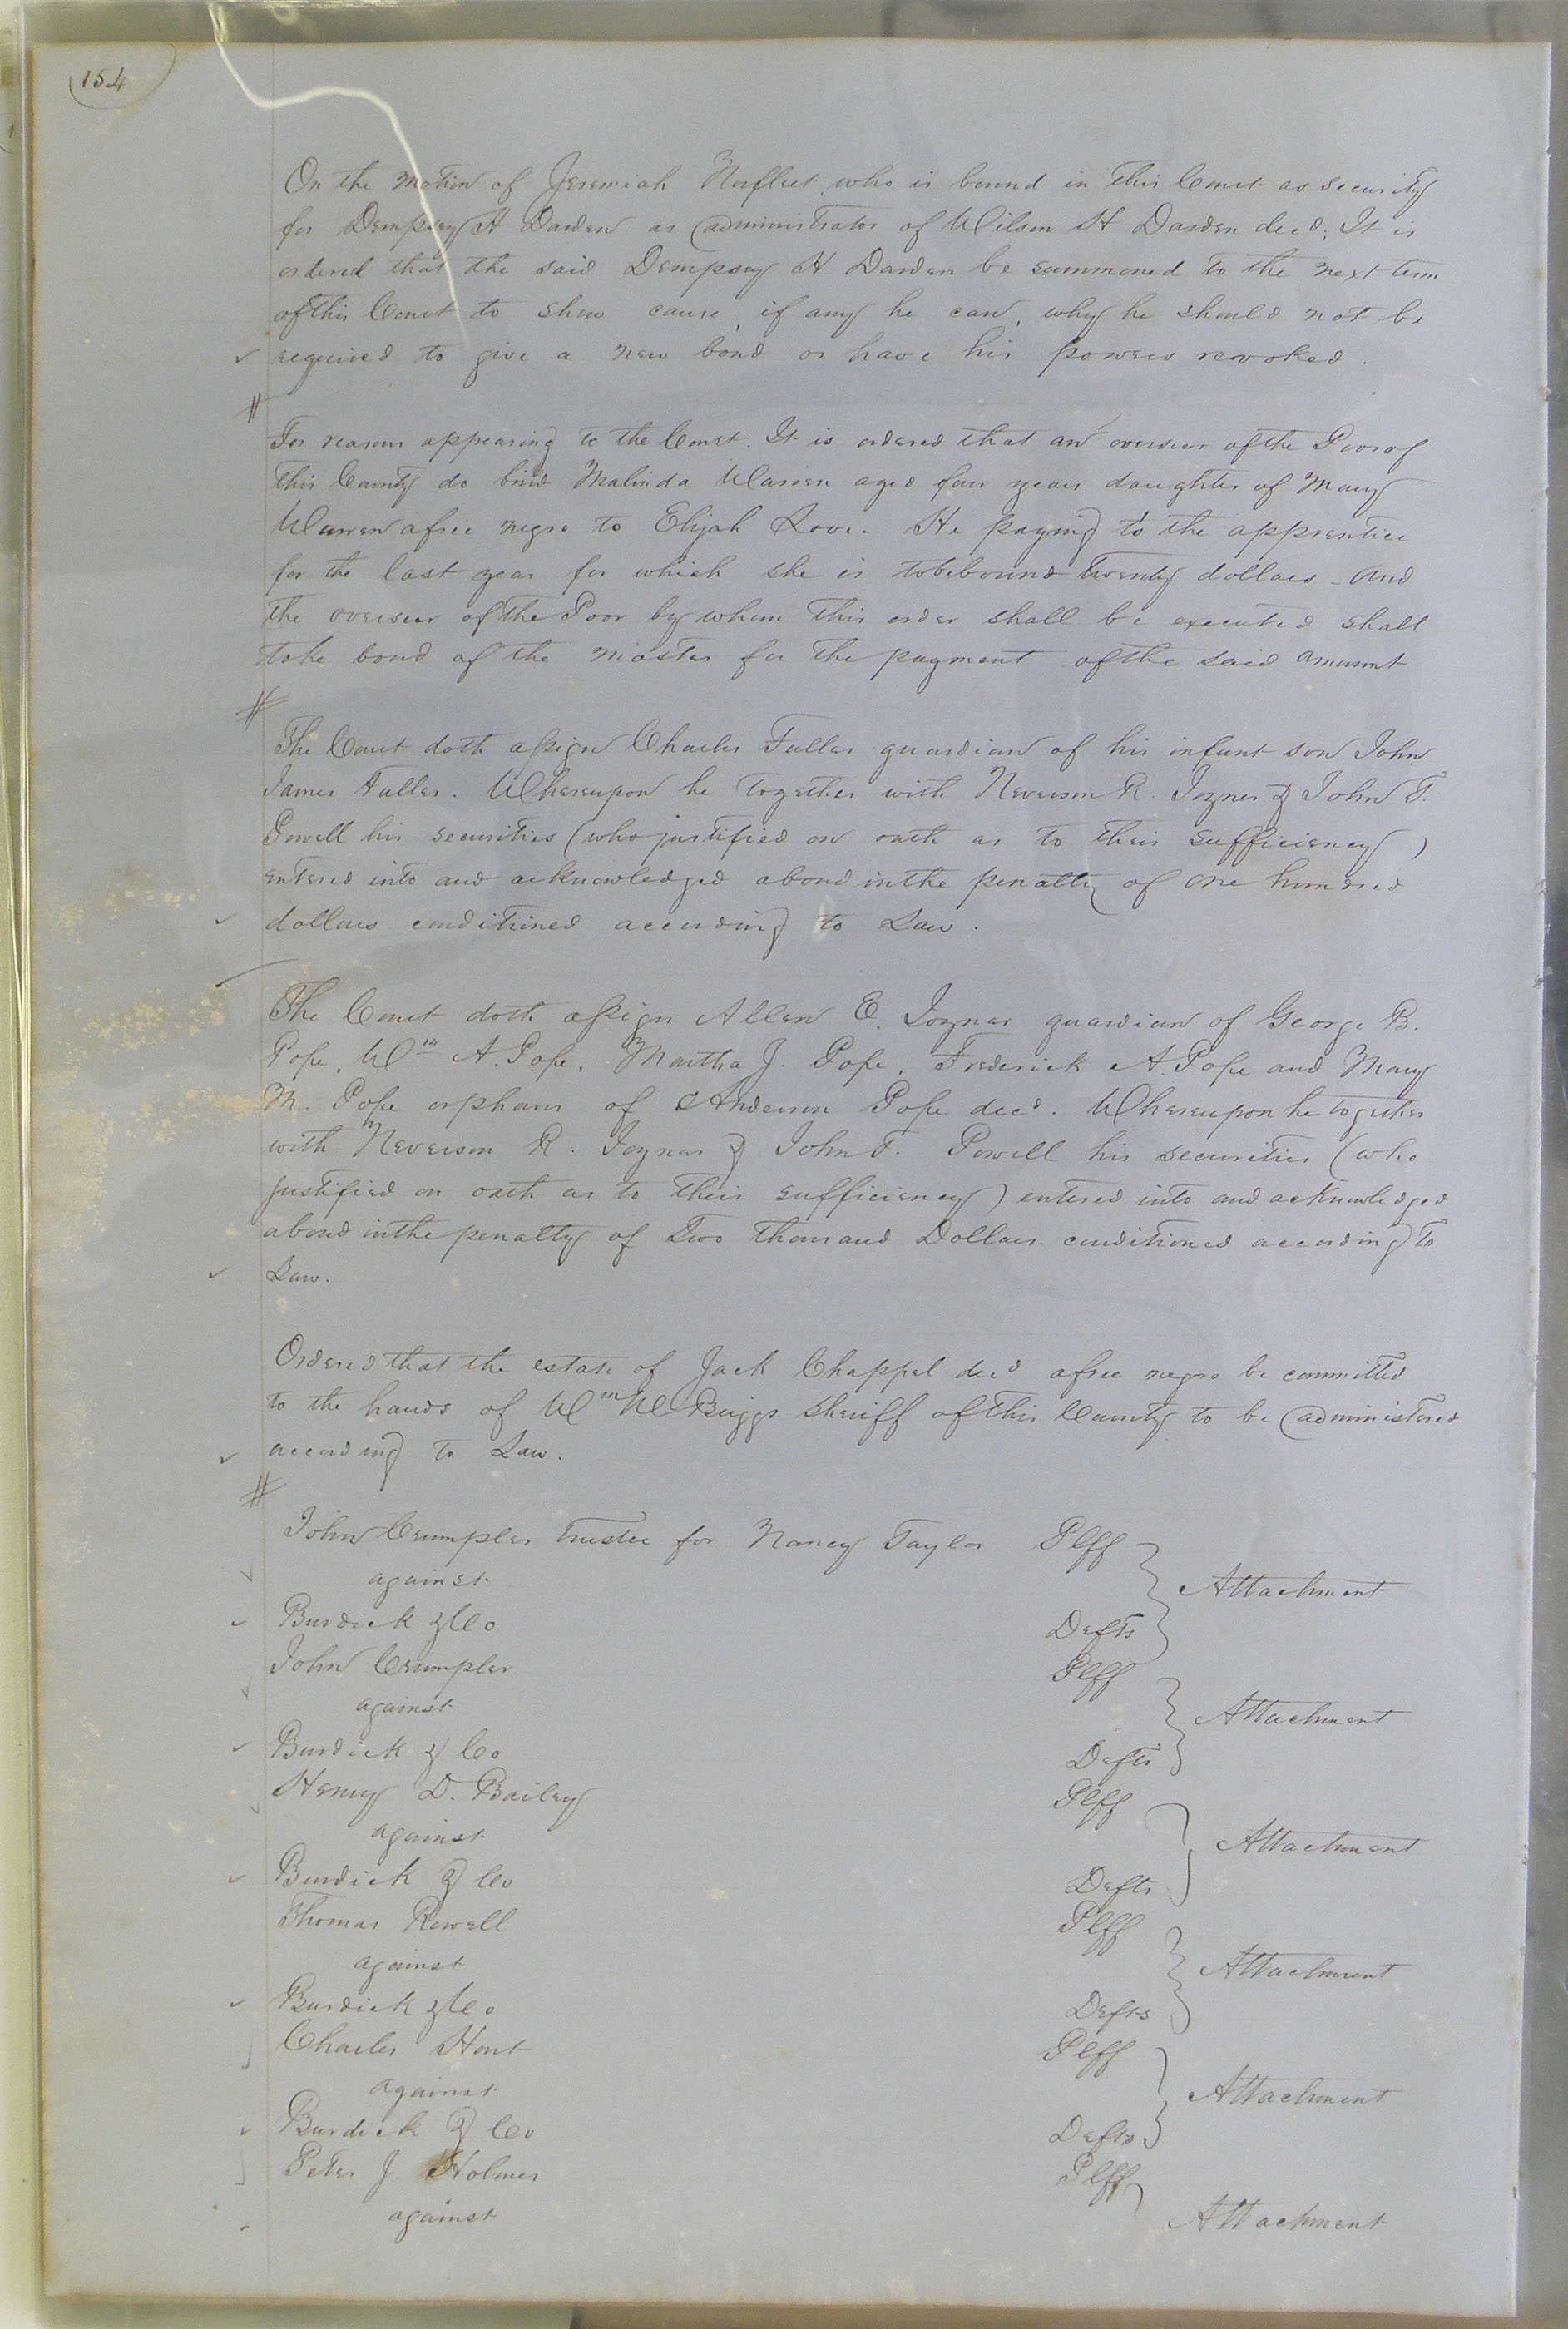 154
On the motion of Jeremiah Norfleet who is bound in this Court as security
for Dempsey H Darden as administrator of Wilson H Darden decd; It is
ordered that the said Dempsey H Darden be summoned to the next term
of this Court to shew cause, if any he can, why he should not be
required to give a new bond or have his powers revoked.
For reasons appearing to the Court. It is ordered that an overseer of the Poor of
this County do bind Malinda Warren aged four years daughter of Mary
Warren a free negro to Elijah Love. He paying to the apprentice
for the last year for which she is to be bound twenty dollars - And
the overseer of the Poor by whom this order shall be executed shall
take bond of the master for the payment of the said amount
The Court doth assign Charles Fuller guardian of his infant son John
James Fuller. Whereupon he together with Neverson R. Joyner & John T.
Powell his securities (who justified on oath as to their sufficiency)
entered into and acknowledged a bond in the penalty of one hundred
dollars conditioned according to Law.
The Court doth assign Allen E. Joyner guardian of George B.
Pope, Wm A. Pope, Martha J. Pope, Frederick A. Pope and Mary
M. Pope orphans of Anderson Pope decd. Whereupon he together
with Neverson R. Joyner & John T. Powell his securities (who
justified on oath as to their sufficiency) entered into and acknowledged
a bond in the penalty of Two thousand Dollars conditioned according to
Law.
Ordered that the estate of Jack Chappel decd a free negro be committed
to the hands of Wm W Briggs Sheriff of this County to be administered
according to Law.
John Crumpler trustee for Nancy Taylor Plff
against Attachment
Burdick & Co Defts
John Crumpler Plff
against Attachment
Burdick & Co Defts
Henry D. Bailey Plff
against Attachment
Burdick & Co Defts
Thomas Rowell Plff
against Attachment
Burdick & Co Defts
Charles Hart Plff
against Attachment
Burdick & Co Defts
Peter J. Holmes Plff
against Attachment